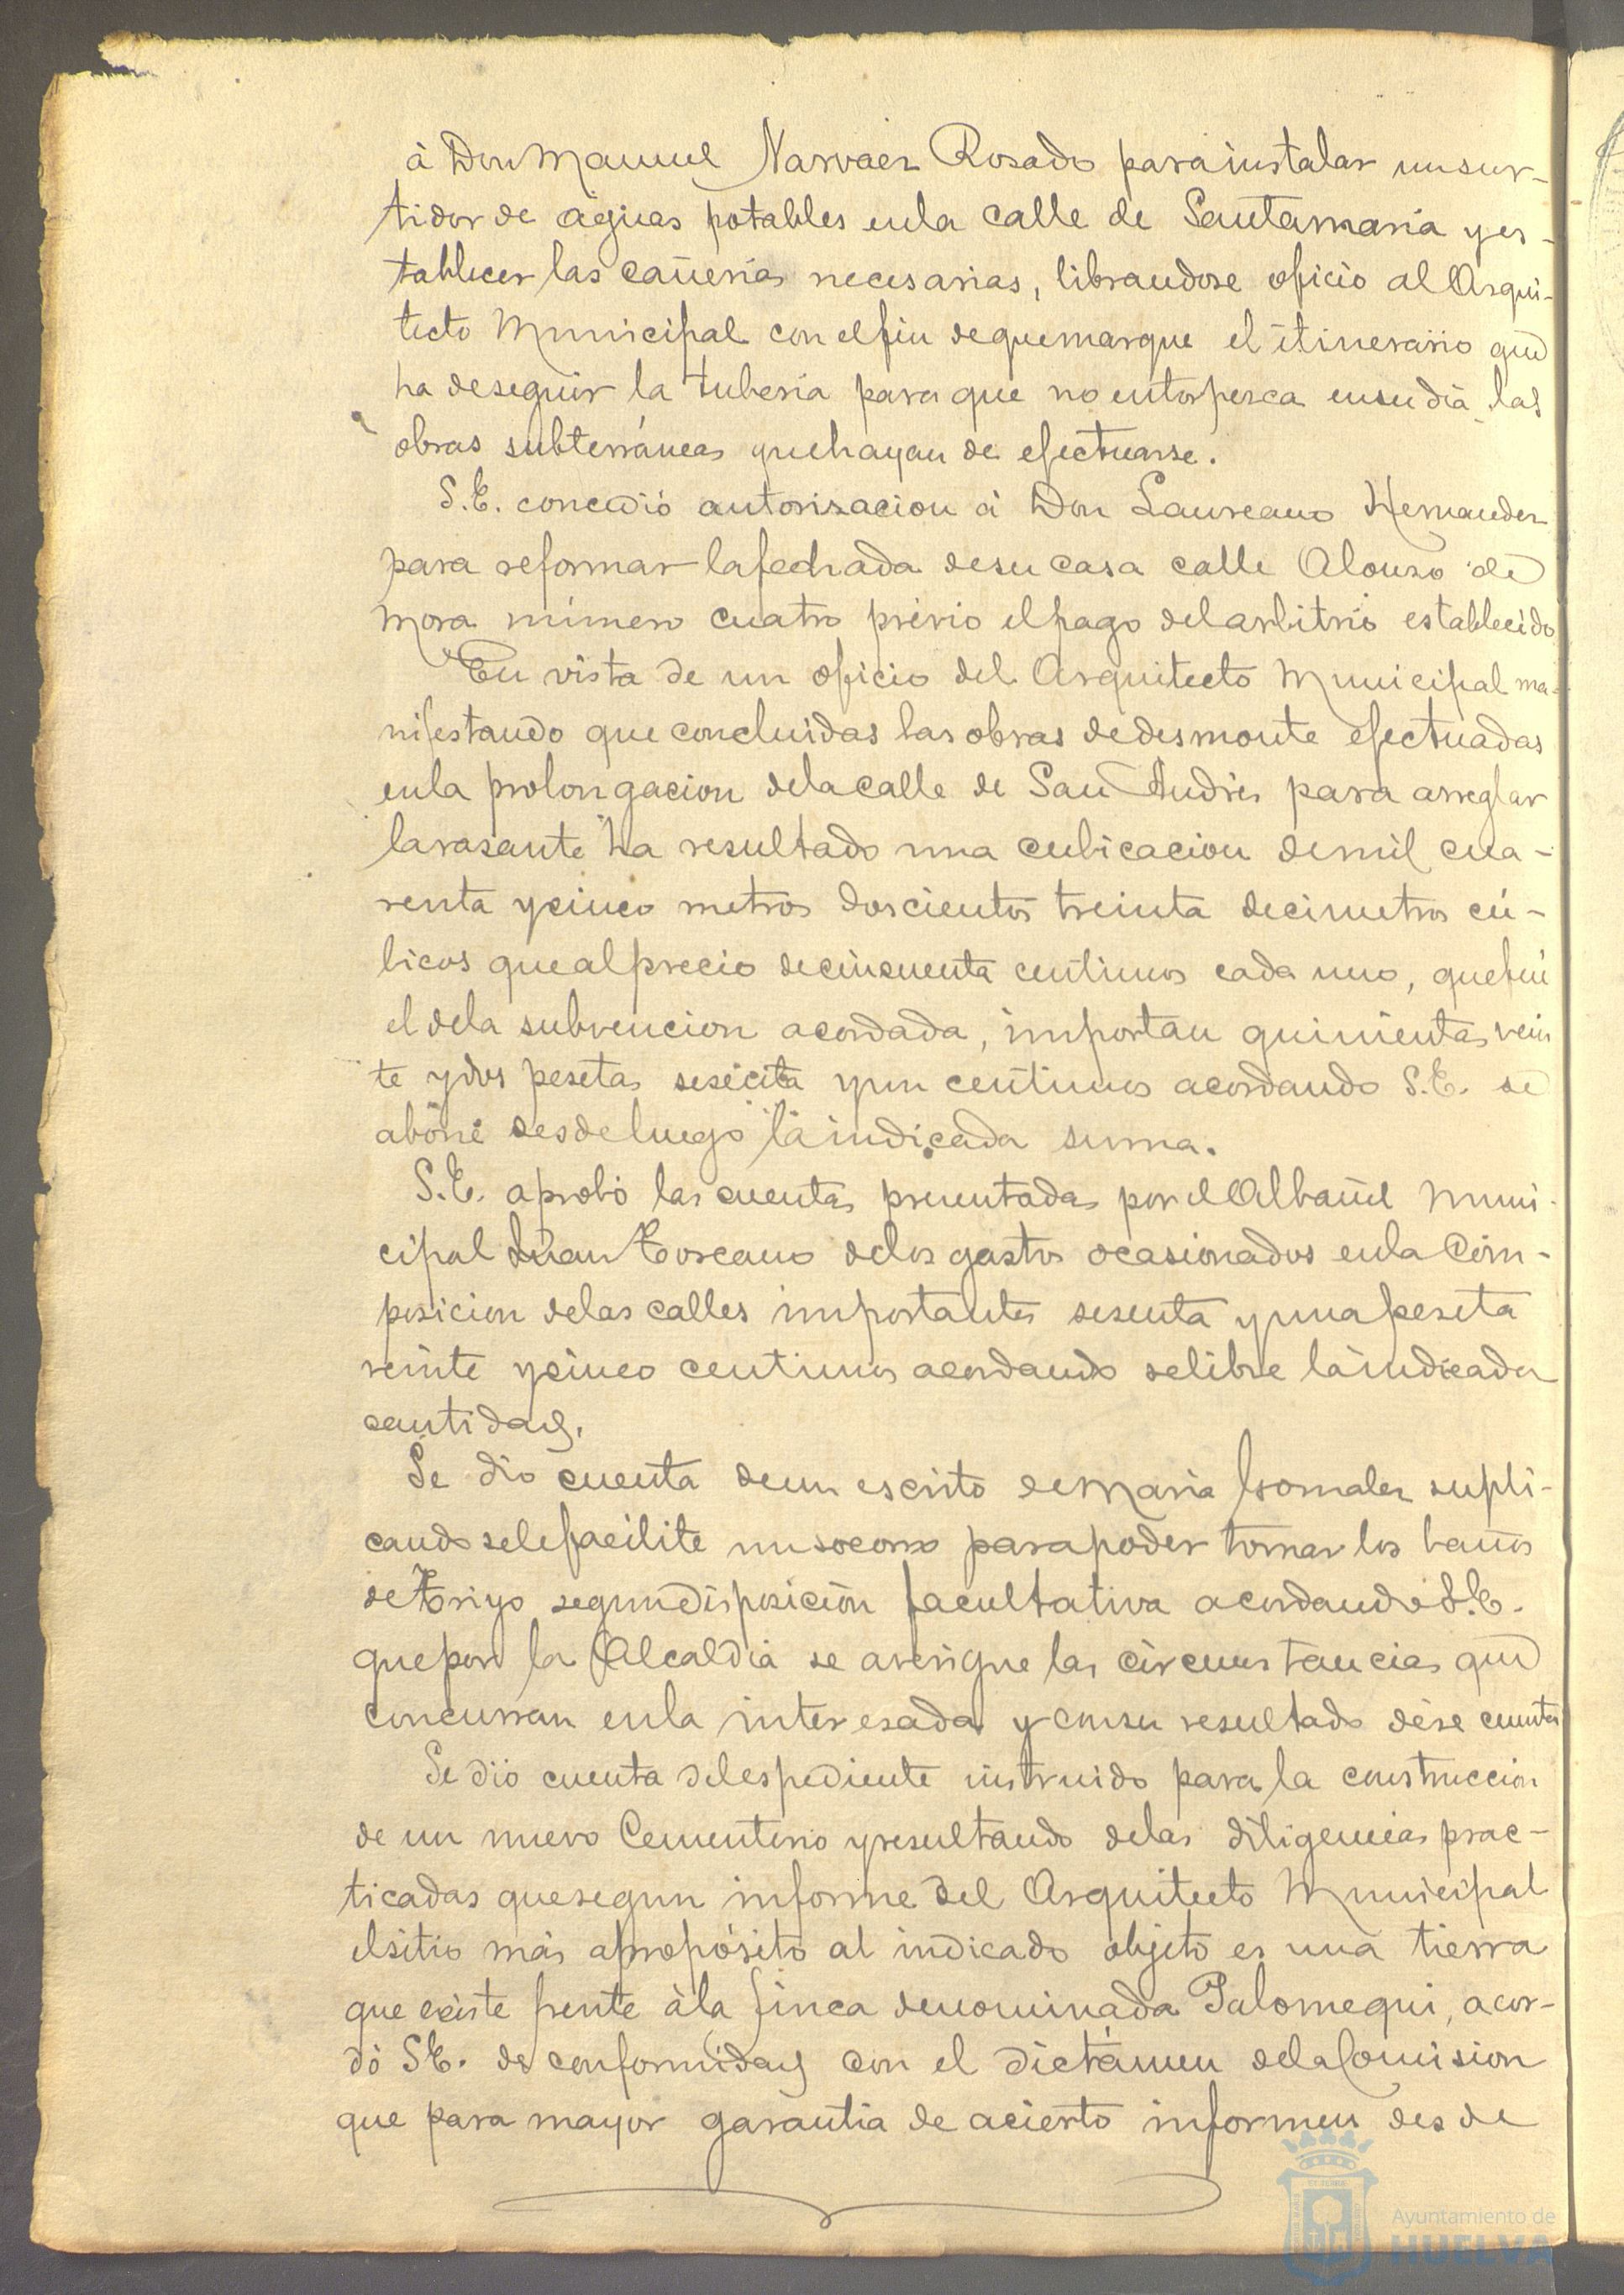 á Don Manuel Narvaez Rosado para instalar un sur-
tidor de aguas potables en la calle de Santa maria y es-
tablecer las cañerias necesarias, librandose oficio al Arqui-
tecto Municipal con el fin de que marque el itinerario que
ha de seguir la tuberia para que no entorpezca en su dia las
obras subterráneas que hayan de efectuarse.
S.E. concedió autorizacion á Don Laureano Hernandez
para reformar la fachada de su casa calle Alonso de
Mora número cuatro prévio el pago del arbitrio establecido
En vista de un oficio del Arquitecto Municipal ma-
nifestando que concluidas las obras de desmonte efectuadas
en la prolongacion de la calle de San Andrés para arreglar
la rasante ha resultado una cubicacion de mil cua-
renta y cinco metros doscientos treinta decimetros cú-
bicos que al precio de cincuenta centimos cada uno, que fué
el de la subvencion acordada, importan quinientas vein
te y dos pesetas sesenta y un centimos acordando S.E. se
abone desde luego la indicada suma.
S.E. aprobó las cuentas presentadas por el Albañil Muni-
cipal Juan Toscano de los gastos ocasionados en la Com-
posicion de las calles importantes sesenta y una peseta
veinte y cinco centimos acordando se libre la indicada
cantidad.
Se dió cuenta de un escrito de Maria Gonzalez supli-
cando se le facilite un socorro para poder tomar los baños
de Trigo segun disposicion facultativa acordando S.E.
que por la Alcaldia se averigue las circunstancias que
concurran en la interesada y con su resultado dése cuenta
Se dió cuenta del espediente instruido para la construccion
de un nuevo Cementerio y resultando de las diligencias prac-
ticadas que segun informe del Arquitecto Municipal
el sitio más apropósito al indicado objeto es una tierra
que existe frente á la finca denominada Palomeque, acor-
dó S.E. de conformidad con el dictámen de la Comision
que para mayor garantia de acierto informen desde
Ayuntamiento de
HUELVA